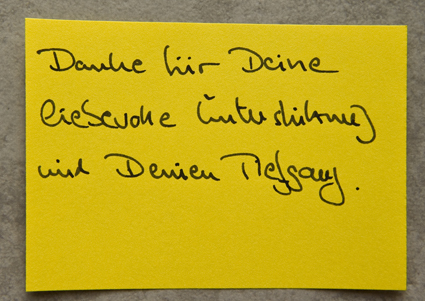 Danke für Deine
liebevolle Unterstützung
und Deinen Tiefgang.